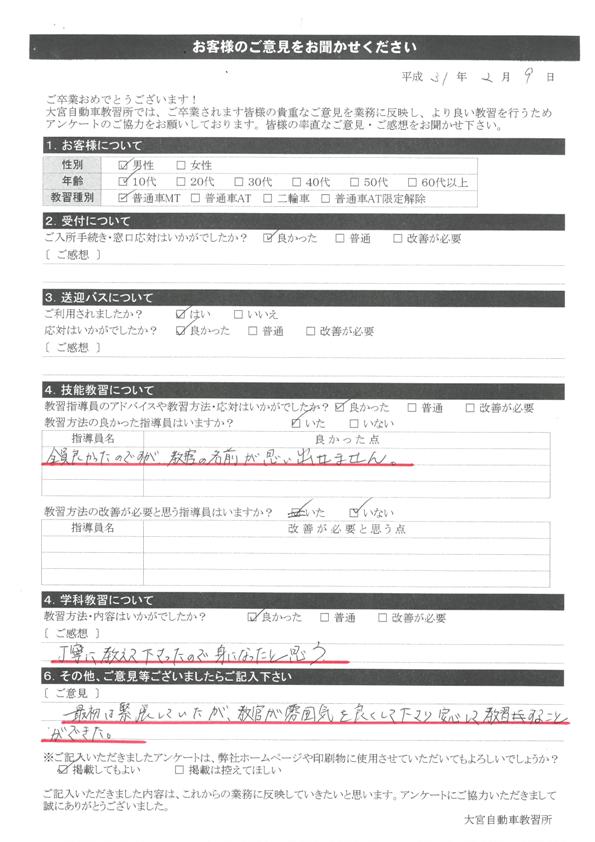 お客様のご意見をお聞かせください
平成 31 年 2 月 9 日
ご卒業おめでとうございます!
大宮自動車教習所では、ご卒業されます皆様の貴重なご意見を業務に反映し、より良い教習を行うため
アンケートのご協力をお願いしております。皆様の率直なご意見・ご感想をお聞かせ下さい。
1. お客様について
性別 ☑男性 □女性
年齢 ☑10代 □20代 □30代 □40代 □50代 □60代以上
教習種別 ☑普通車MT □普通車AT □二輪車 □普通車AT限定解除
2. 受付について
ご入所手続き・窓口応対はいかがでしたか? ☑良かった □普通 □改善が必要
[ ご感想 ]
3. 送迎バスについて
ご利用されましたか? ☑はい □いいえ
応対はいかがでしたか? ☑良かった □普通 □改善が必要
[ ご感想 ]
4. 技能教習について
教習指導員のアドバイスや教習方法・応対はいかがでしたか? ☑良かった □普通 □改善が必要
教習方法の良かった指導員はいますか? ☑いた □いない
指導員名 良かった点
全員良かったのですが、教官の名前が思い出せません。
教習方法の改善が必要と思う指導員はいますか? ☑いた ☑いない
指導員名 改善が必要と思う点
4. 学科教習について
教習方法・内容はいかがでしたか? ☑良かった □普通 □改善が必要
[ ご感想 ]
丁寧に教えて下さったので身になったと思う
6. その他、ご意見等ございましたらご記入下さい
[ ご意見 ]
最初は緊張していたが、教官が雰囲気を良くして下さり安心して教習をすること
ができた。
※ご記入いただきましたアンケートは、弊社ホームページや印刷物に使用させていただいてもよろしいでしょうか?
☑掲載してもよい □掲載は控えてほしい
ご記入いただきました内容は、これからの業務に反映していきたいと思います。アンケートにご協力いただきまして
誠にありがとうございました。
大宮自動車教習所